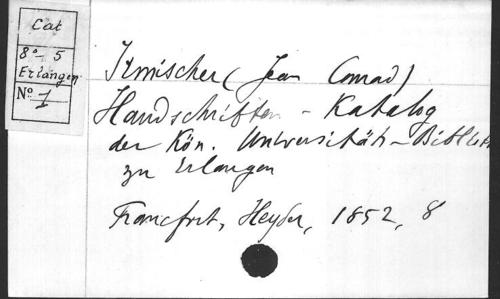 Cat
8° - 5
Erlangen
N° 1
Irmischer (Jean Conrad)
Handschriften - Katalog
der Kön. Universitäts - Biblioth
zu Erlangen
Francfort, Heyder, 1852, 8